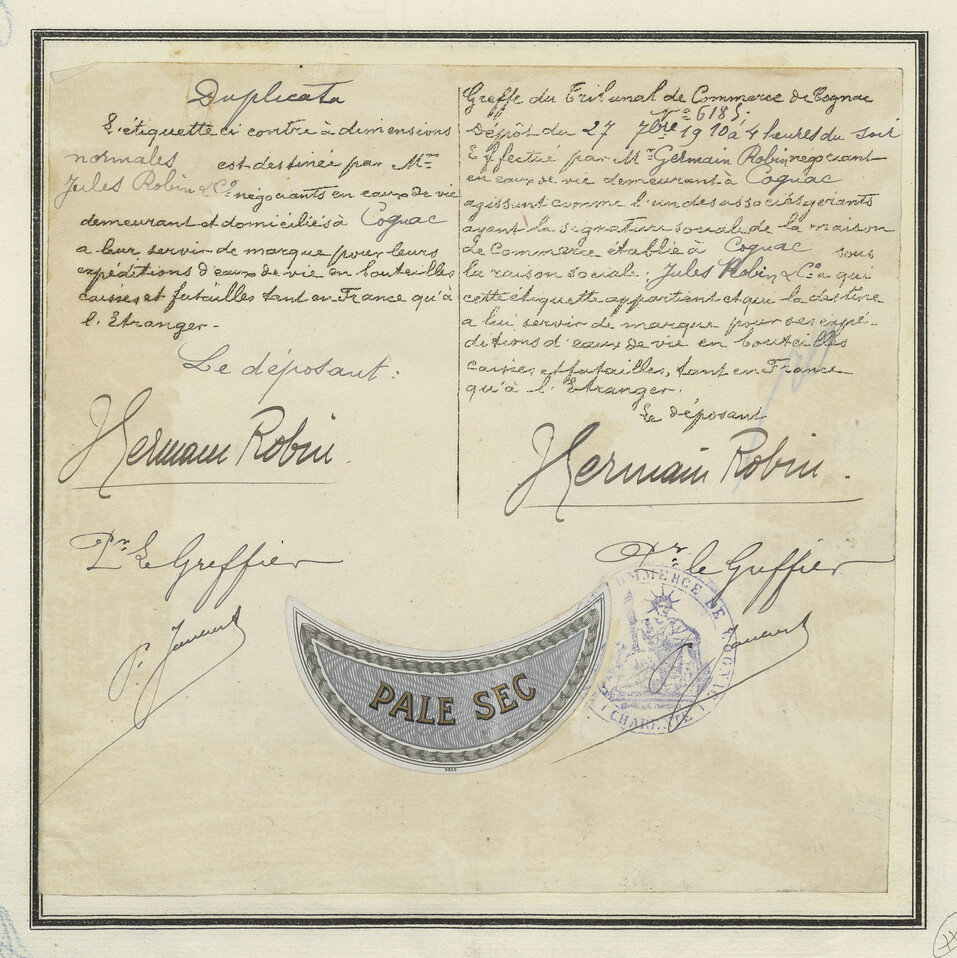 Duplicata
L'étiquette ci contre à dimensions
normales est destinée par Mrs
Jules Robin & Co négociants en eaux de vie
demeurant et domiciliés à Cognac
a leur servir de marque pour leurs
expéditions d'eaux de vie en bouteilles
caisses et futailles tant en France qu'à
l'Etranger -
Le déposant :
Germain Robin.
Pr Le Greffier
Greffe du Tribunal de Commerce de Cognac
No 6185
Dépôt du 27 7bre 1910 à 4 heures du soir
Effectué par Mr Germain Robin négociant
en eaux de vie demeurant à Cognac
agissant comme l'un des associés gérants
ayant la signature sociale de la maison
de Commerce établie à Cognac sous
la raison sociale. Jules Robin & Co a qui
cette étiquette appartient et qui la destine
a lui servir de marque pour ses expé-
ditions d'eaux de vie en bouteilles
caisses et futailles, tant en France
qu'à l'Etranger.
Le déposant
Germain Robin.
Pr le Greffier
PALE SEC
COMMERCE DE COGNAC
(CHARENTE)